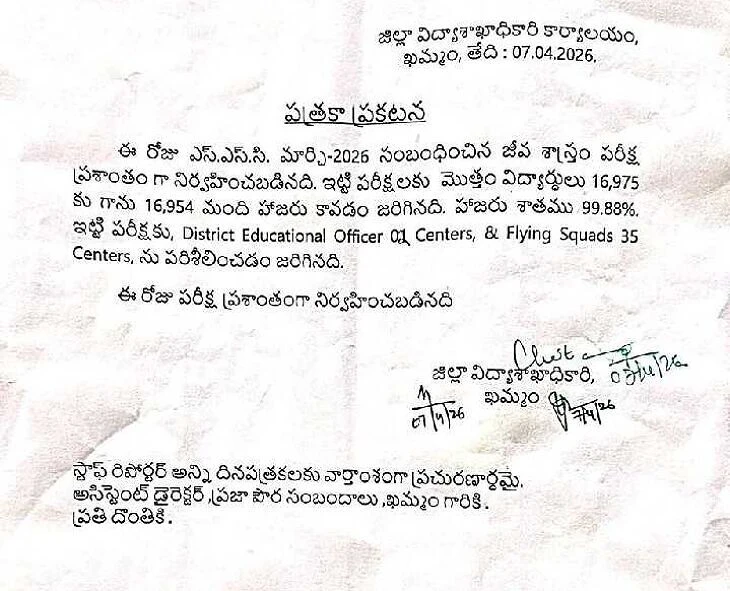 జిల్లా విద్యాశాఖాధికారి కార్యాలయం,
ఖమ్మం, తేది : 07.04.2026.
పత్రికా ప్రకటన
ఈ రోజు ఎస్.ఎస్.సి. మార్చి-2026 సంబంధించిన జీవ శాస్త్రం పరీక్ష
ప్రశాంతం గా నిర్వహించబడినది. ఇట్టి పరీక్షలకు మొత్తం విద్యార్థులు 16,975
కు గాను 16,954 మంది హాజరు కావడం జరిగినది. హాజరు శాతము 99.88%.
ఇట్టి పరీక్షకు, District Educational Officer 01 Centers, & Flying Squads 35
Centers, ను పరిశీలించడం జరెగినది.
ఈ రోజు పరీక్ష ప్రశాంతంగా నిర్వహించబడినది
జిల్లా విద్యాశాఖాధికారి, 07/4/26
ఖమ్మం
07/4/26 7/4/26
స్టాఫ్ రిపోర్టర్ అన్ని దినపత్రికలకు వార్తాంశంగా ప్రచురణార్థమై.
అసిస్టెంట్ డైరెక్టర్ ,ప్రజా పౌర సంబందాలు ,ఖమ్మం గారికి.
ప్రతి దొంతికి.